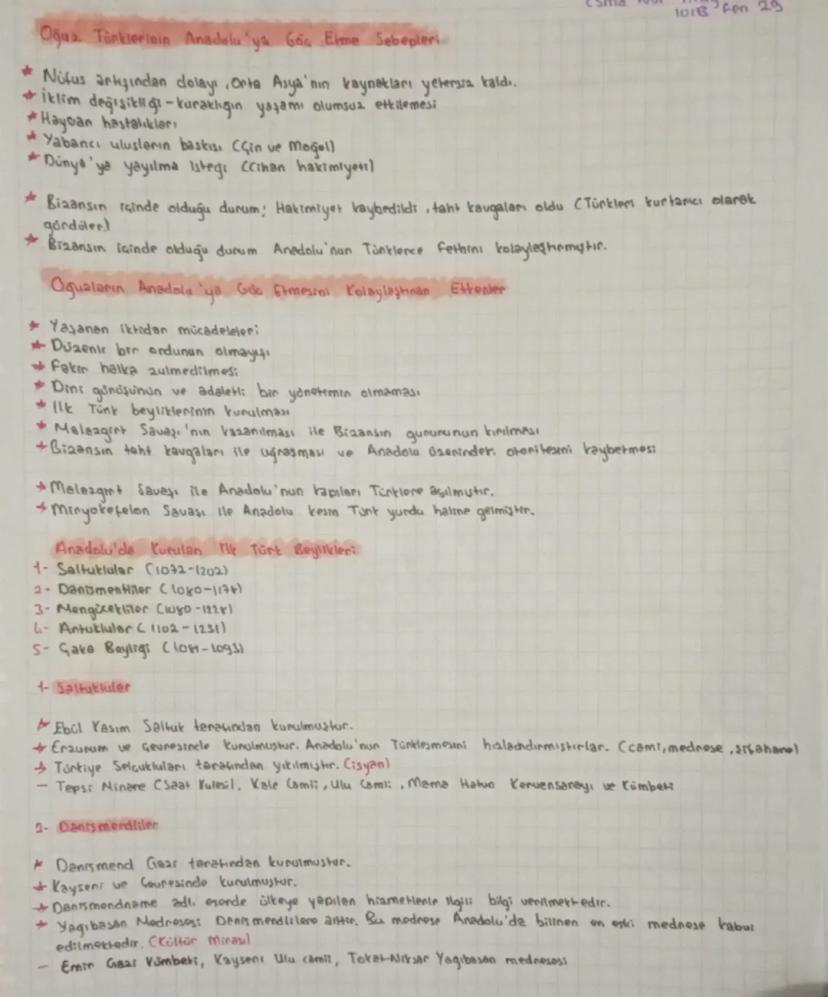 10/B Fen 29
Oğuz Türklerinin Anadolu'ya Göç Etme Sebepleri
* Nüfus artışından dolayı, Orta Asya'nın kaynakları yetersiz kaldı.
* İklim değişikliği - kuraklığın yaşamı olumsuz etkilemesi
* Hayvan hastalıkları
* Yabancı ulusların baskısı (Çin ve Moğol)
* Dünya'ya yayılma isteği (Cihan hakimiyeti)
* Bizansın içinde olduğu durum; Hakimiyet kaybedildi, taht kavgaları oldu (Türkleri kurtarıcı olarak
gördüler)
* Bizansın içinde olduğu durum Anadolu'nun Türklerce fethini kolaylaştırmıştır.
Oğuzların Anadolu'ya Göç Etmesini Kolaylaştıran Etkenler
* Yaşanan iktidar mücadeleleri
* Düzenli bir ordunun olmayışı
* Fakir halka zulmedilmesi
* Dini görüşünün ve adaletli bir yönetimin olmaması
* İlk Türk beyliklerinin kurulması
* Malazgirt Savaşı'nın kazanılması ile Bizansın gururunun kırılması
* Bizansın taht kavgaları ile uğraşması ve Anadolu üzerinden otoritesini kaybetmesi
* Malazgirt Savaşı ile Anadolu'nun kapıları Türklere açılmıştır.
* Miryokefelon Savaşı ile Anadolu kesin Türk yurdu haline gelmiştir.
Anadolu'da Kurulan İlk Türk Beylikleri
1- Saltuklular (1072-1202)
2- Danışmentliler (1080-1178)
3- Mengücekliler (1080-1228)
4- Artuklular (1102-1231)
5- Çaka Beyliği (1081-1093)
1- Saltuklular
* Ebul Kasım Saltuk tarafından kurulmuştur.
* Erzurum ve çevresinde kurulmuştur. Anadolu'nun Türkleşmesini hızlandırmışlardır. (cami, medrese, şifahane)
* Türkiye Selçukluları tarafından yıkılmıştır. (isyan)
- Tepsi Minare (Saat Kulesi), Kale Camii, Ulu Camii, Mama Hatun Kervansarayı ve Kümbeti
2- Danışmendliler
* Danışmend Gazi tarafından kurulmuştur.
* Kayseri ve Çevresinde kurulmuştur.
* Danışmendname adlı eserde ülkeye yapılan hizmetlerle ilgili bilgi verilmektedir.
* Yağıbasan Medresesi Danişmendlilere aittir. Bu medrese Anadolu'da bilinen en eski medrese kabul
edilmektedir. (Kültür Mirası)
- Emir Gazi Kümbeti, Kayseri Ulu camii, Tokat-Niksar Yağıbasan medresesi